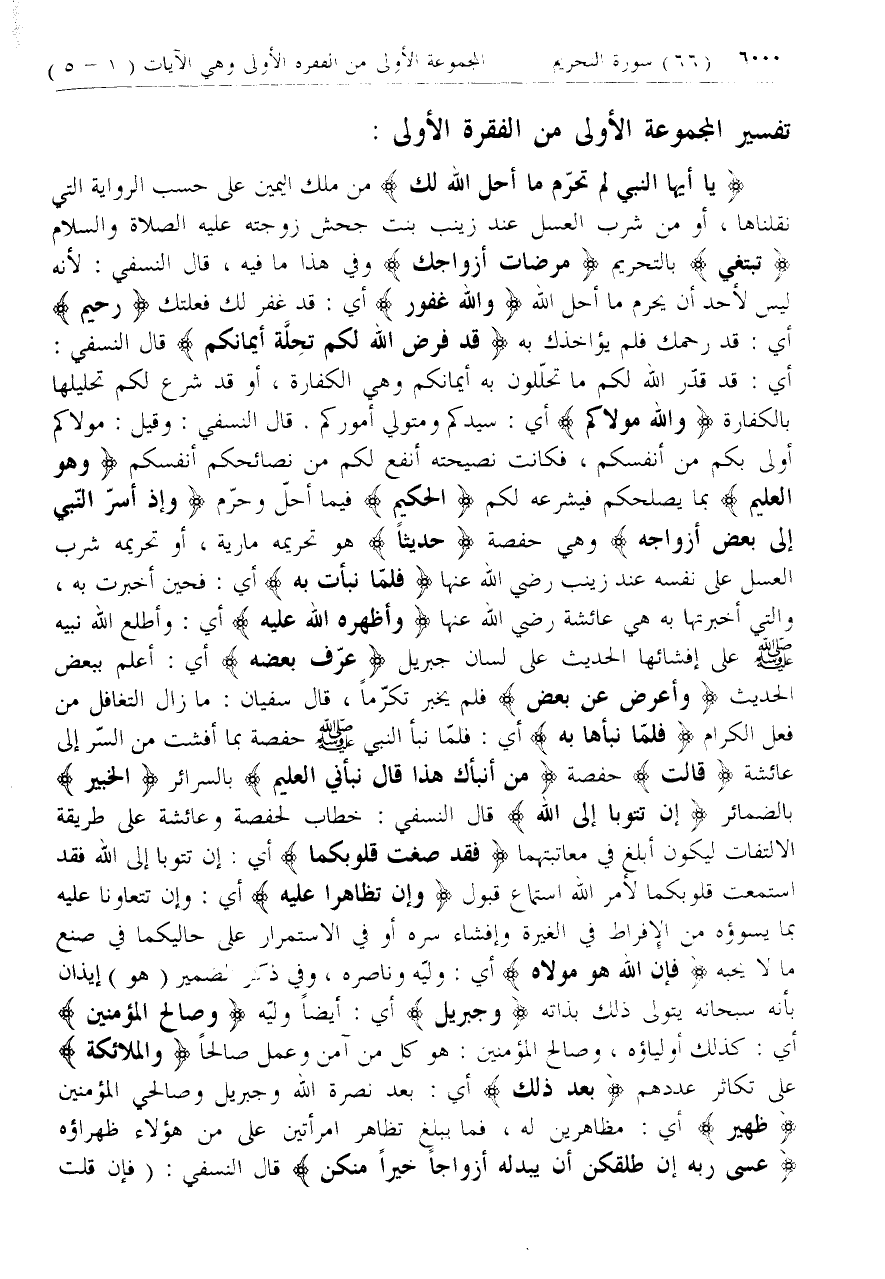 ٦٠٠٠ (٦٦) سورة التحريم المجموعة الأولى من الفقرة الأولى وهي الآيات ( ١ - ٥ )
تفسير المجموعة الأولى من الفقرة الأولى :
﴿ يا أيها النبي لم تحرّم ما أحل الله لك ﴾ من ملك اليمين على حسب الرواية التي
نقلناها ، أو من شرب العسل عند زينب بنت جحش زوجته عليه الصلاة والسلام
﴿ تبتغي ﴾ بالتحريم ﴿ مرضات أزواجك ﴾ وفي هذا ما فيه ، قال النسفي : لأنه
ليس لأحد أن يحرم ما أحل الله ﴿ والله غفور ﴾ أي : قد غفر لك فعلتك ﴿ رحيم ﴾
أي : قد رحمك فلم يؤاخذك به ﴿ قد فرض الله لكم تحِلَّة أيمانكم ﴾ قال النسفي :
أي : قد قدّر الله لكم ما تحلّلون به أيمانكم وهي الكفارة ، أو قد شرع لكم تحليلها
بالكفارة ﴿ والله مولاكم ﴾ أي : سيدكم ومتولي أموركم . قال النسفي : وقيل : مولاكم
أولى بكم من أنفسكم ، فكانت نصيحته أنفع لكم من نصائحكم أنفسكم ﴿ وهو
العليم ﴾ بما يصلحكم فيشرعه لكم ﴿ الحكيم ﴾ فيما أحلّ وحرّم ﴿ وإذ أسرّ النّبي
إلى بعض أزواجه ﴾ وهي حفصة ﴿ حديثاً ﴾ هو تحريمه مارية ، أو تحريمه شرب
العسل على نفسه عند زينب رضي الله عنها ﴿ فلمّا نبأت به ﴾ أي : فحين أخبرت به ،
والتي أخبرتها به هي عائشة رضي الله عنها ﴿ وأظهره الله عليه ﴾ أي : وأطلع الله نبيه
ﷺ على إفشائها الحديث على لسان جبريل ﴿ عرّف بعضه ﴾ أي : أعلم ببعض
الحديث ﴿ وأعرض عن بعض ﴾ فلم يخبر تكرّماً ، قال سفيان : ما زال التغافل من
فعل الكرام ﴿ فلمّا نبأها به ﴾ أي : فلمّا نبأ النبي ﷺ حفصة بما أفشت من السّر إلى
عائشة ﴿ قالت ﴾ حفصة ﴿ من أنبأك هذا قال نبأني العليم ﴾ بالسرائر ﴿ الخبير ﴾
بالضمائر ﴿ إن تتوبا إلى الله ﴾ قال النسفي : خطاب لحفصة وعائشة على طريقة
الالتفات ليكون أبلغ في معاتبتهما ﴿ فقد صغت قلوبكما ﴾ أي : إن تتوبا إلى الله فقد
استمعت قلوبكما لأمر الله استماع قبول ﴿ وإن تظاهرا عليه ﴾ أي : وإن تتعاونا عليه
بما يسوؤه من الإفراط في الغيرة وإفشاء سره أو في الاستمرار على حاليكما في صنع
ما لا يحبه ﴿ فإن الله هو مولاه ﴾ أي : وليّه وناصره ، وفي ذكر الضمير ( هو ) إيذان
بأنه سبحانه يتولى ذلك بذاته ﴿ وجبريل ﴾ أي : أيضاً وليّه ﴿ وصالح المؤمنين ﴾
أي : كذلك أولياؤه ، وصالح المؤمنين : هو كل من آمن وعمل صالحاً ﴿ والملائكة ﴾
على تكاثر عددهم ﴿ بعد ذلك ﴾ أي : بعد نصرة الله وجبريل وصالحي المؤمنين
﴿ ظهير ﴾ أي : مظاهرين له ، فما يبلغ تظاهر امرأتين على من هؤلاء ظهراؤه
﴿ عسى ربه إن طلقكن أن يبدله أزواجاً خيراً منكن ﴾ قال النسفي : ( فإن قلت